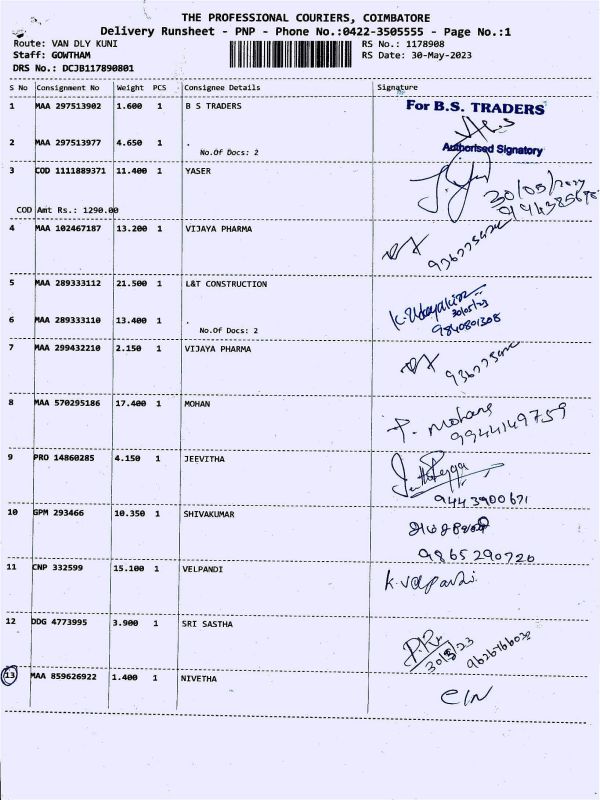 THE PROFESSIONAL COURIERS, COIMBATORE
Delivery Runsheet - PNP - Phone No.:0422-3505555 - Page No.:1
Route: VAN DLY KUNI RS No.: 1178908
Staff: GOWTHAM RS Date: 30-May-2023
DRS No.: DCJB117890801
S No Consignment No Weight PCS Consignee Details Signature
1 MAA 297513902 1.600 1 B S TRADERS For B.S. TRADERS
2 MAA 297513977 4.650 1 . Authorised Signatory
No.Of Docs: 2
3 COD 1111889371 11.400 1 YASER
COD Amt Rs.: 1290.00
4 MAA 102467187 13.200 1 VIJAYA PHARMA
5 MAA 289333112 21.500 1 L&T CONSTRUCTION
30/05/23
6 MAA 289333110 13.400 1 . 9840801308
No.Of Docs: 2
7 MAA 299432210 2.150 1 VIJAYA PHARMA
8 MAA 570295186 17.400 1 MOHAN
P. Mohans
9944149759
9 PRO 14860285 4.150 1 JEEVITHA
9443900671
10 GPM 293466 10.350 1 SHIVAKUMAR
9865290720
11 CNP 332599 15.100 1 VELPANDI K. Velpandi
12 DDG 4773995 3.900 1 SRI SASTHA
13 MAA 859626922 1.400 1 NIVETHA